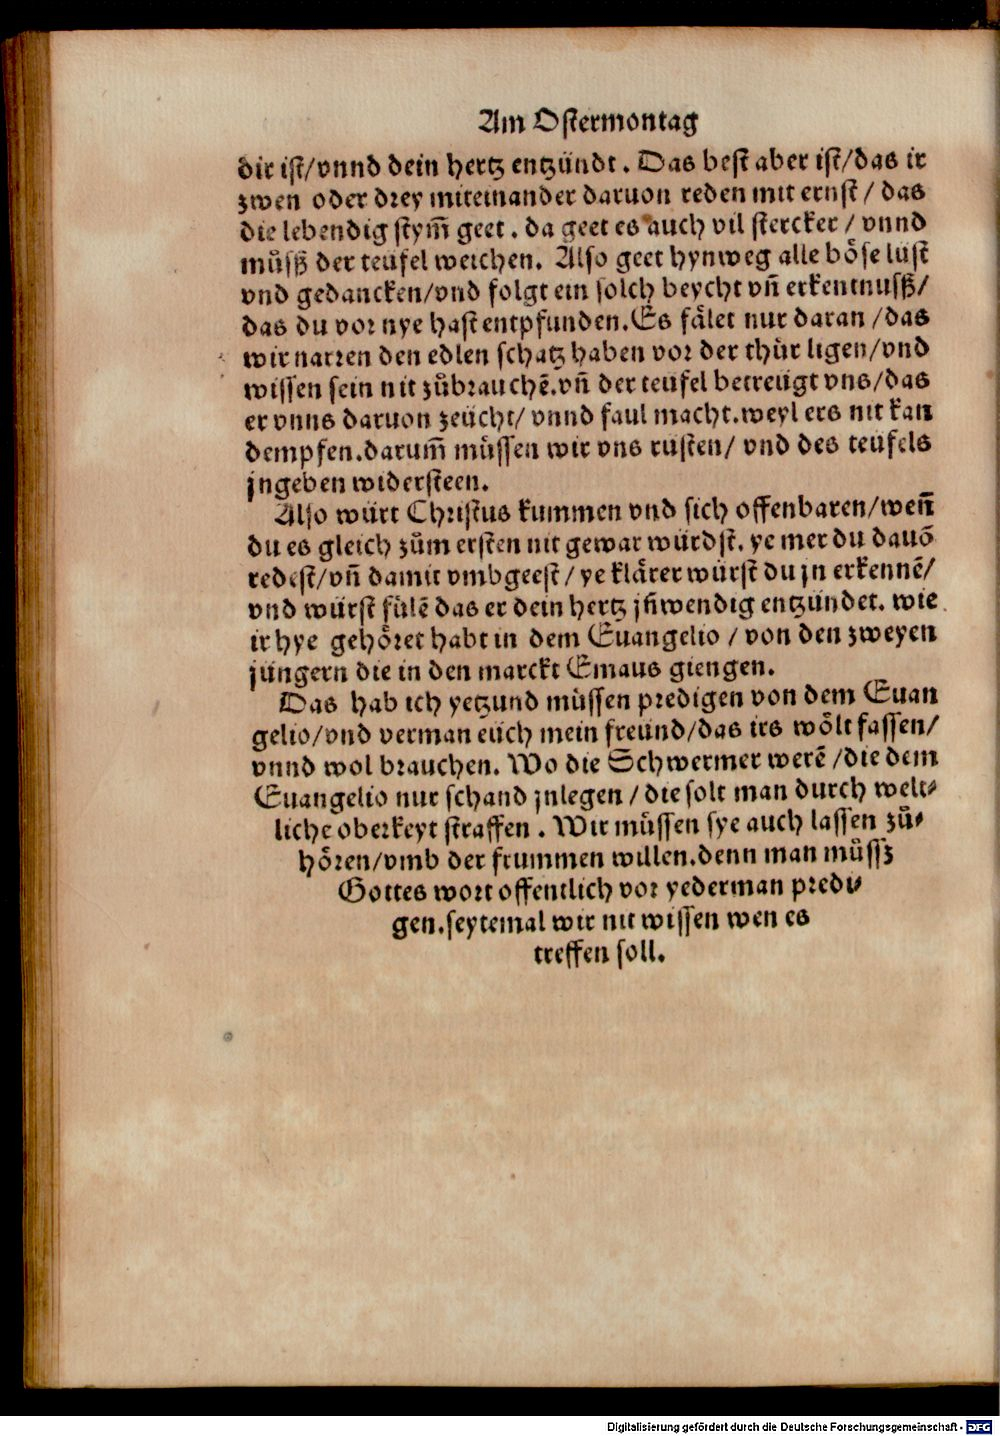 Am Ostermontag
dir ist/vnnd dein hertz entzündt. Das best aber ist/das ir
zwen oder drey miteinander daruon reden mit ernst/ das
die lebendig stym̃ geet. da geet es auch vil stercker/ vnnd
můsß der teufel weichen. Also geet hynweg alle böse lüst
vnd gedancken/vnd folgt ein solch beycht vñ erkentnusß/
das du vor nye hast entpfunden. Es fälet nur daran/das
wir narren den edlen schatz haben vor der thür ligen/vnd
wissen sein nit zůbrauchẽ.vñ der teufel betreügt vns/das
er vnns daruon zeücht/ vnnd faul macht.weyl ers nit kan
dempfen.darum̃ müssen wir vns rüsten/ vnd des teüfels
jngeben widersteen.
Also würt Christus kummen vnd sich offenbaren/weñ
du es gleich zům ersten nit gewar würdst. ye mer du dauõ
redest/vñ damit vmbgeest/ye klärer würst du jn erkennẽ/
vnd würst fülẽ das er dein hertz jñwendig entzündet. wie
ir hye gehöret habt in dem Euangelio/ von den zweyen
jüngern die in den marckt Emaus giengen.
Das hab ich yetzund müssen predigen von dem Euan
gelio/vnd verman eüch mein freünd/das irs wölt fassen/
vnnd wol brauchen. Wo die Schwermer werẽ/die dem
Euangelio nur schand jnlegen/die solt man durch welt⸗
liche oberkeyt straffen. Wir müssen sye auch lassen zů⸗
hören/vmb der frummen willen.denn man můssz
Gottes wort offentlich vor yederman predi⸗
gen.seytemal wir nit wissen wen es
treffen soll.
Digitalisierung gefördert durch die Deutsche Forschungsgemeinschaft - DFG